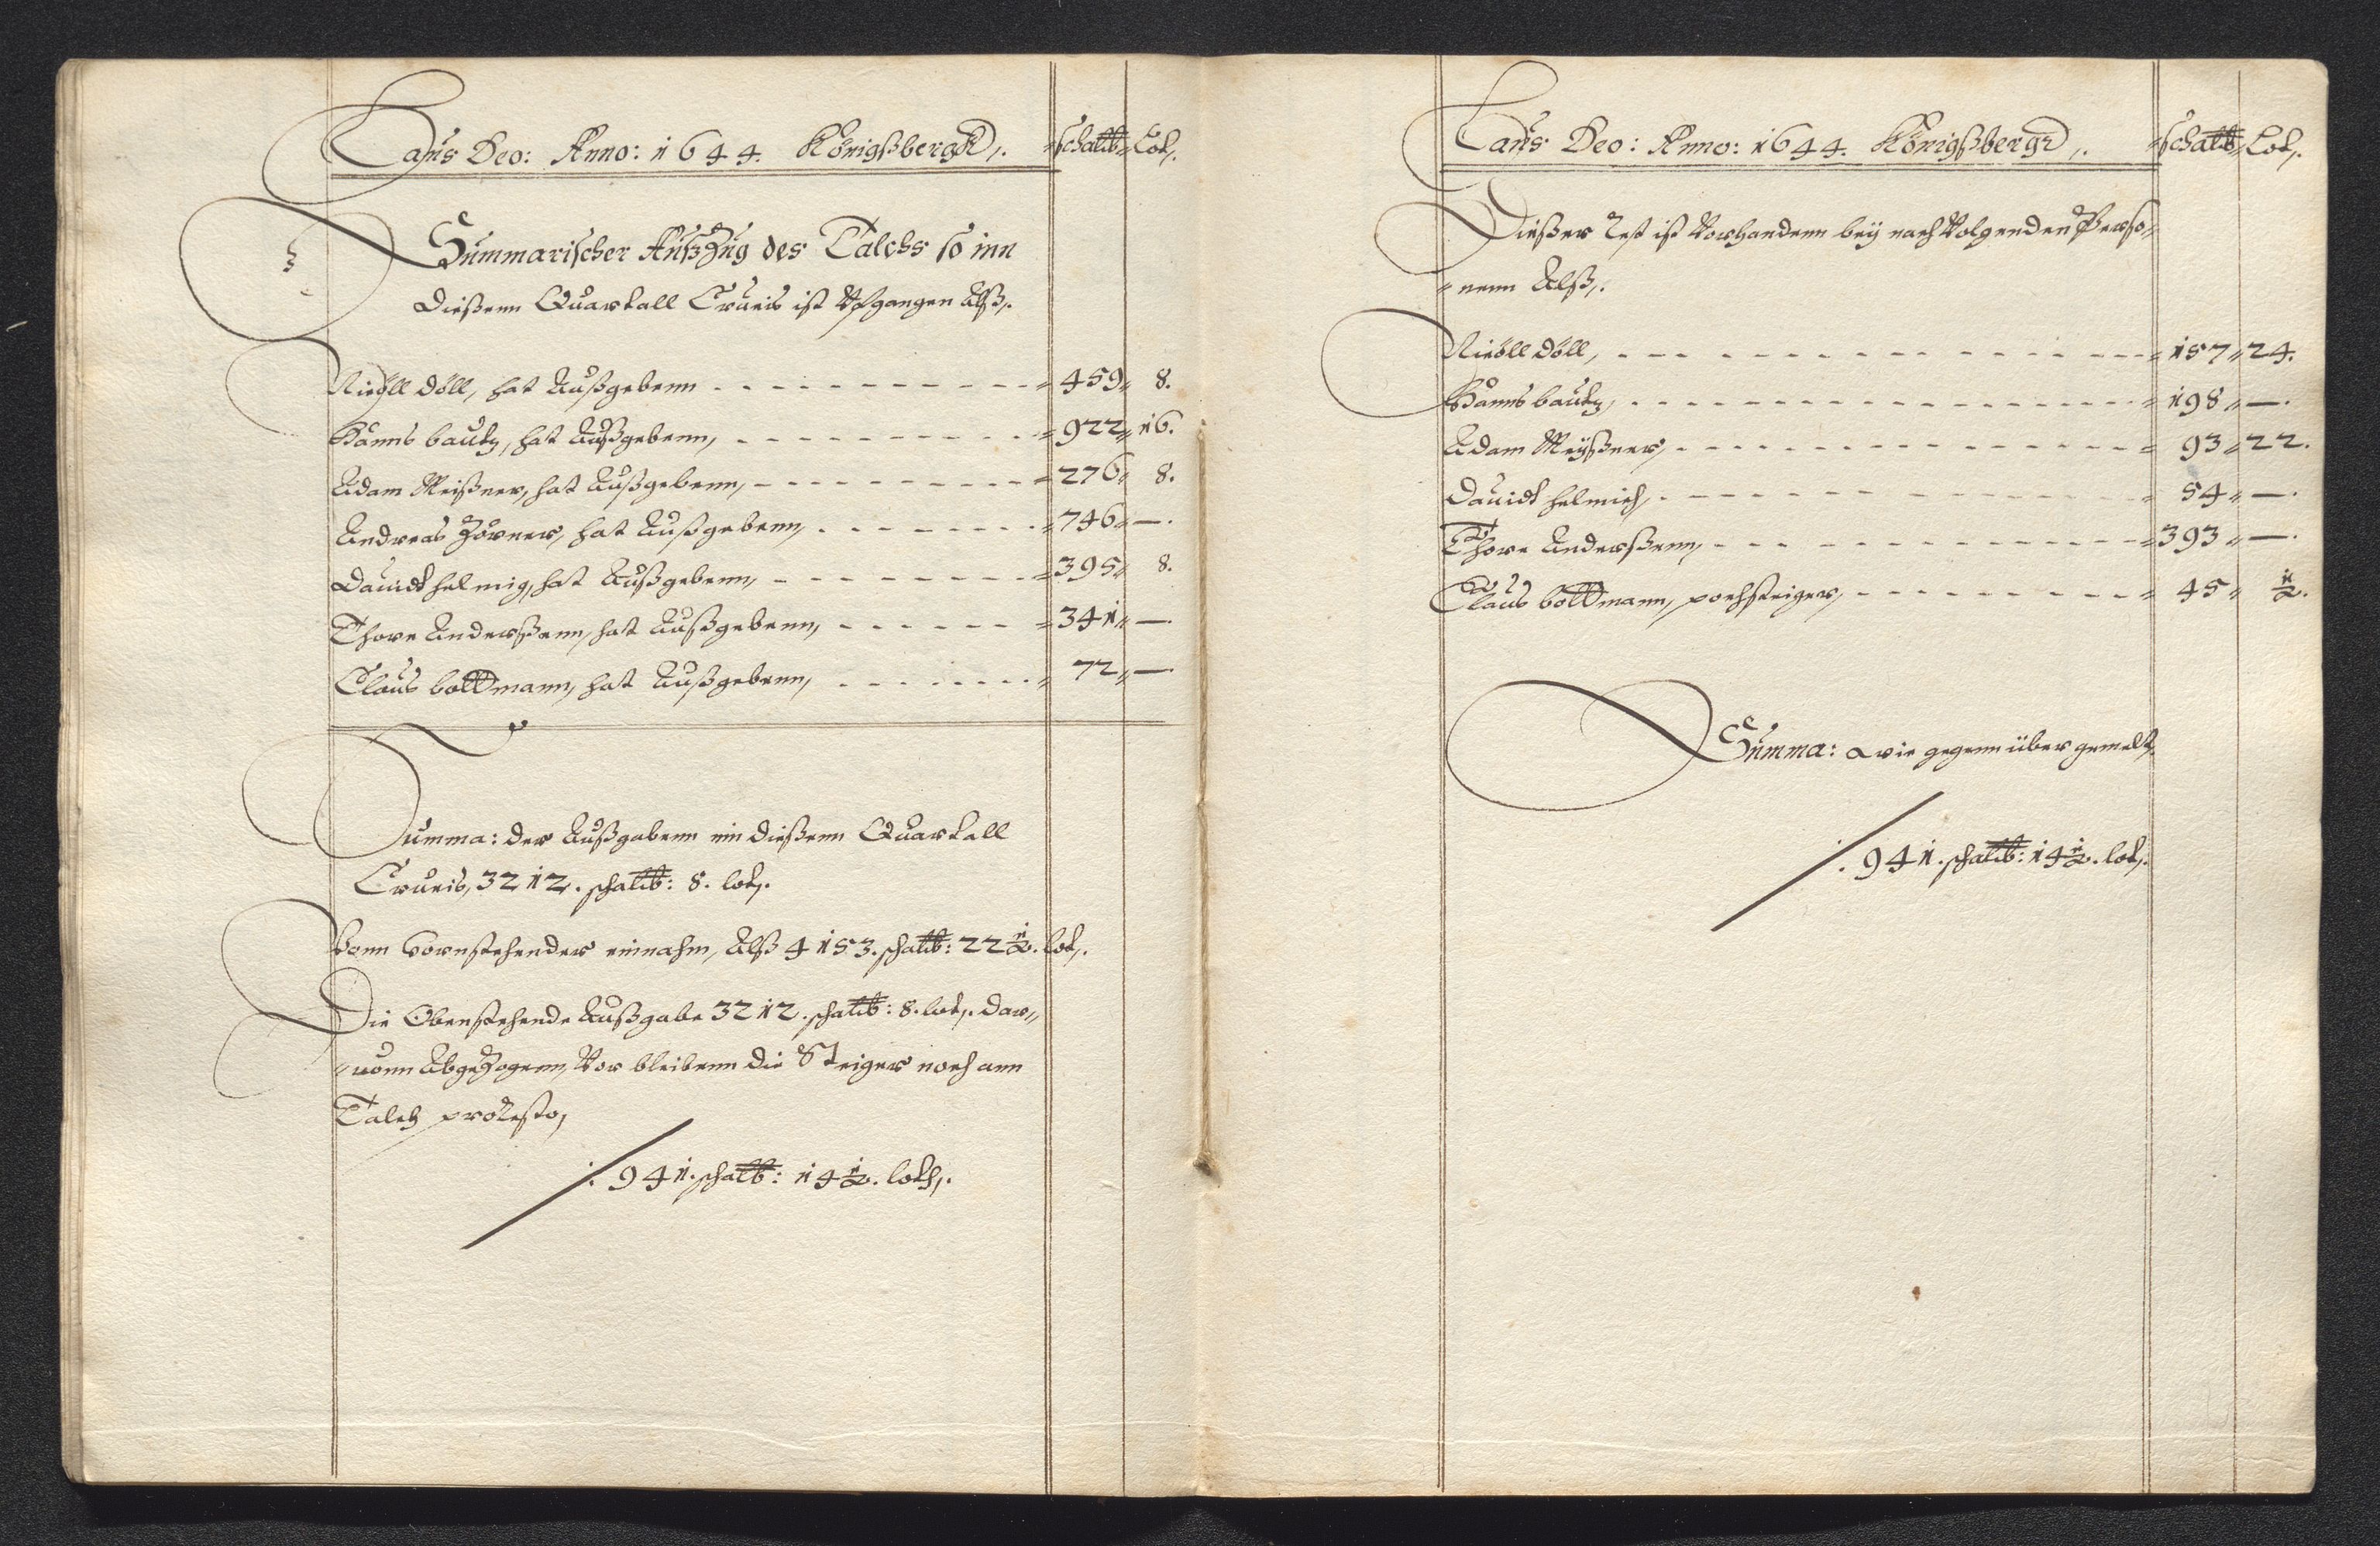 Laus Deo: Anno: 1644. Königßbergk,. schal℔ Lot,.
Summarischer Außzug des Talchs so inn
dießenn Quartall Crucis ist Vfgangen Alß,.
Nicoll Döll, hat Außgebenn - - - 459 8.
Hanns bautz, hat Außgebenn, - - - 922 16.
Adam Meißner, hat Außgebenn, - - - 276 8.
Andreas Zörner, hat Außgebenn, - - - 746 —.
Dauidt helmig, hat Außgebenn, - - - 395 8.
Thore Anderßenn, hat Außgebenn, - - - 341 —.
Claus boltmann, hat Außgebenn, - - - 72 —
Summa: der Außgabenn inn dießenn Quartall
Crucis, 3212. schal℔: 8. lot,.
Vonn vornstehender einnahm, Alß 4153. schal℔: 22½. lot,.
Die Obenstehende Außgabe 3212. schal℔: 8. lot,. dar„
„uonn Abgezogenn, Vor bleibenn die Steiger noch ann
Talch pro Resto,
⁒ 941. schal℔: 14½. loth,.
Laus Deo: Anno: 1644. Königßbergk,. schal℔ Lot,.
Dießer Rest ist Vorhandenn bey nachVolgenden Perso„
„nenn Alß,.
Nicoll Döll, - - - 157 24.
Hanns bautz, - - - 198 —.
Adam Meyßner, - - - 93 22.
Dauidt helmich, - - - 54 —.
Thore Anderßenn, - - - 393 —.
Claus boltmann, pochsteiger, - - - 45 ½.
Summa: Wie gegenn über gemelt,
⁒ 941. schal℔: 14½. lot,.